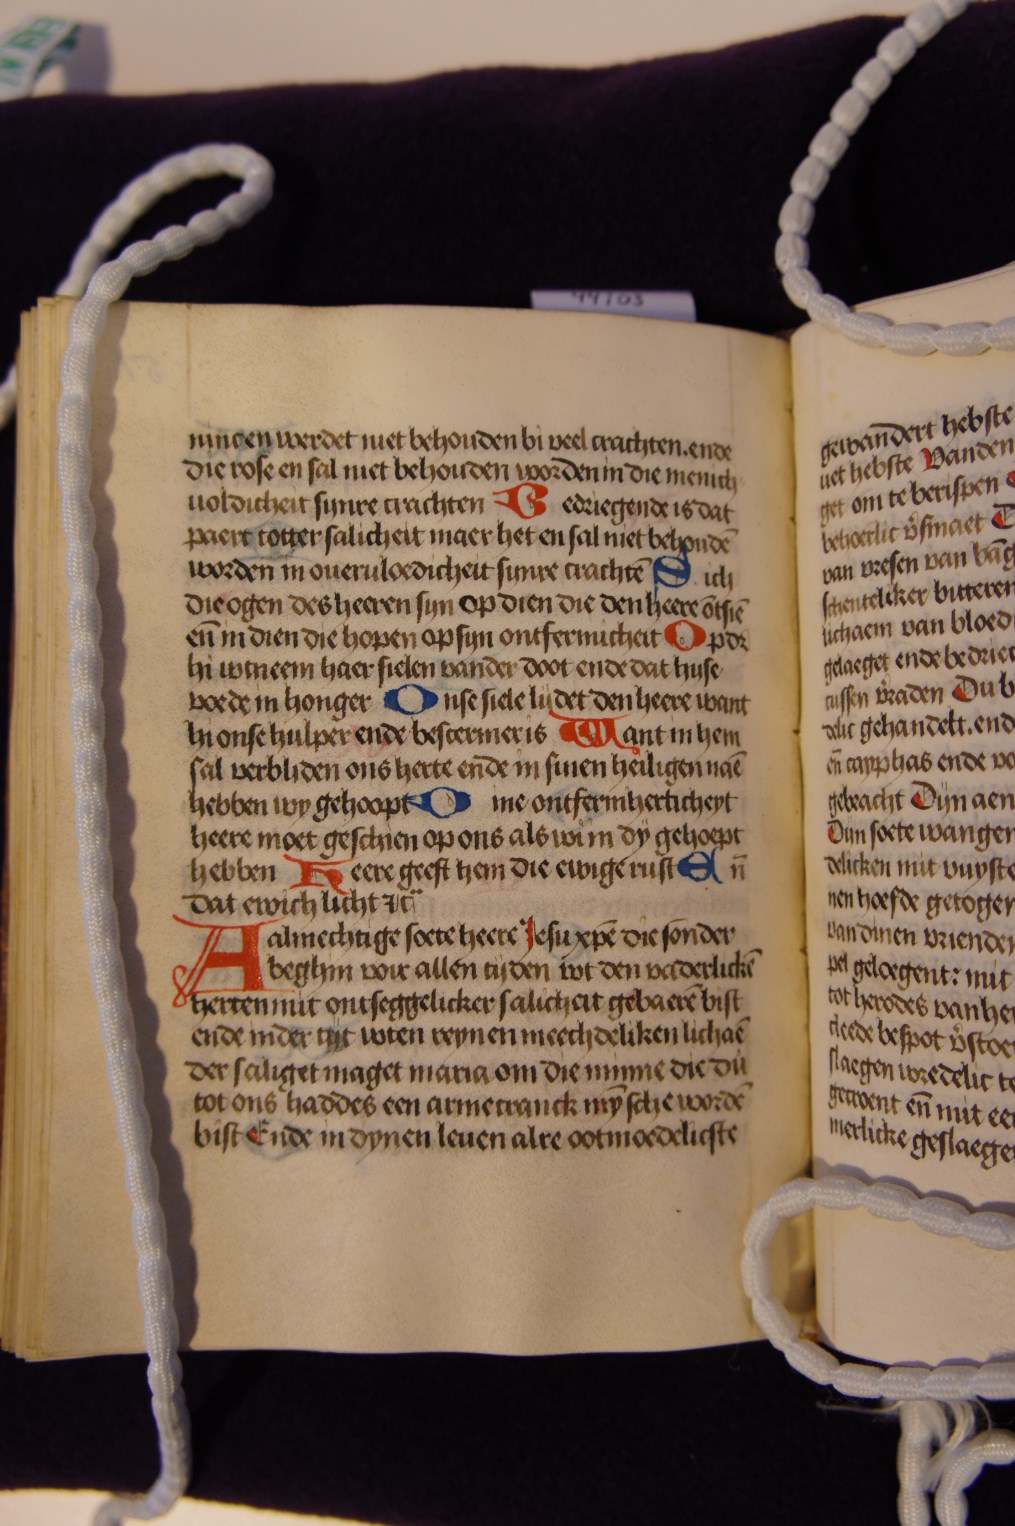 44/03
nincen werdet niet behouden bi veel crachten. ende
die rose en sal niet behouden wordenin die menich
uoldicheit sijnre crachten C edriegende is dat
paert totter salicheit maer het en sal niet behoudē
worden in oueruloedicheit sijnre crachtē S ich
die ogen des heeren sijn op dien die den heere ōtsiē
eñ in dien die hopen op sijn ontfermicheit O p dz
hi wtneem haer sielen vander doot ende dat hijse
voede in honger O nse siele lijdet den heere want
hi onse hulper ende bescermer is Want in hem
sal verbliden ons herte eñde in sinen heiligen naē
hebben wy gehoopt O ine ontfermherticheyt
heere moet geschien op ons als wi in dÿ gehoept
hebben H eere geeft hem die ewige rust E ñ
dat ewich licht
Aalmechtige soete heere Jesu xpē die sonder
beghin voir allen tijden wt den vaderlickē
herten mit ontseggelicker salicheit gebaerē bist
ende inder tijt wten reynen meechdeliken lichaē
der saliget maget maria om die minne die du
tot ons haddes een arme cranck mÿsche wordē
bist Ende in dynen leuen alre ootmoedelicste
gewandert hebste
uet hebste Vanden
get om te berispen
behoerlic v̄smaet
van vresen van
schenteliker bitteren
lichaem van bloed
gelaeget ende bedrie
cussen v̄raden Du b
delic gehandelt. end
eñ cayphas ende vo
gebracht Dijn aen
Dijn soete wangen
delicken mit vuyste
nen hoefde getogen
van dinen vrienden
pel geloegent: mit
tot herodes van he
cleede bespot v̄stoe
slaegen wredelic te
gecroent eñ mit ee
merlicke geslaege